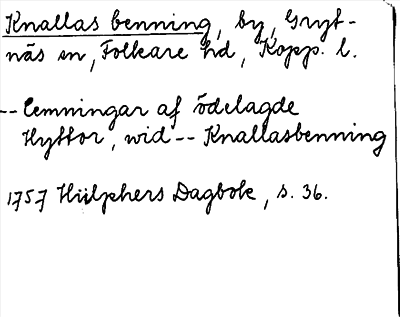 Knallas benning, by, Gryt-
näs sn, Folkare hd, Kopp. l.
-- Lemningar af ödelagde
Hyttor, wid -- Knallasbenning
1757 Hülphers Dagbok, s. 36.